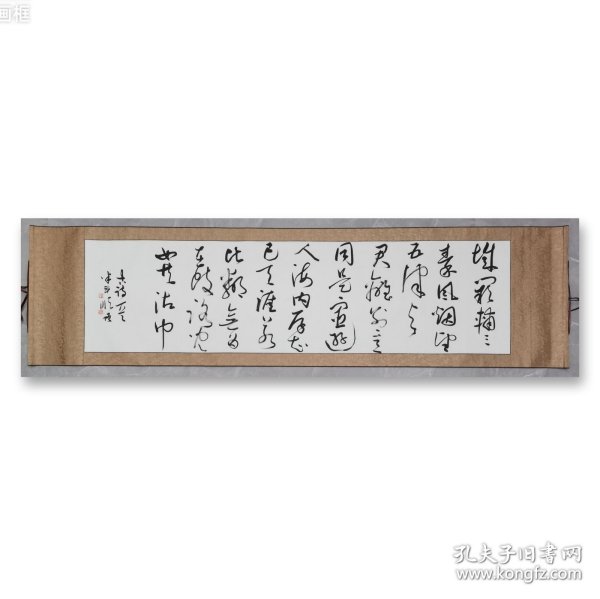 画框
城闕輔三
秦風烟望
五津与
君離別意
同是宦遊
人海内存知
己天涯若
比鄰無為
在歧路児
女共沾巾
孔夫子旧书网
www.kongfz.com